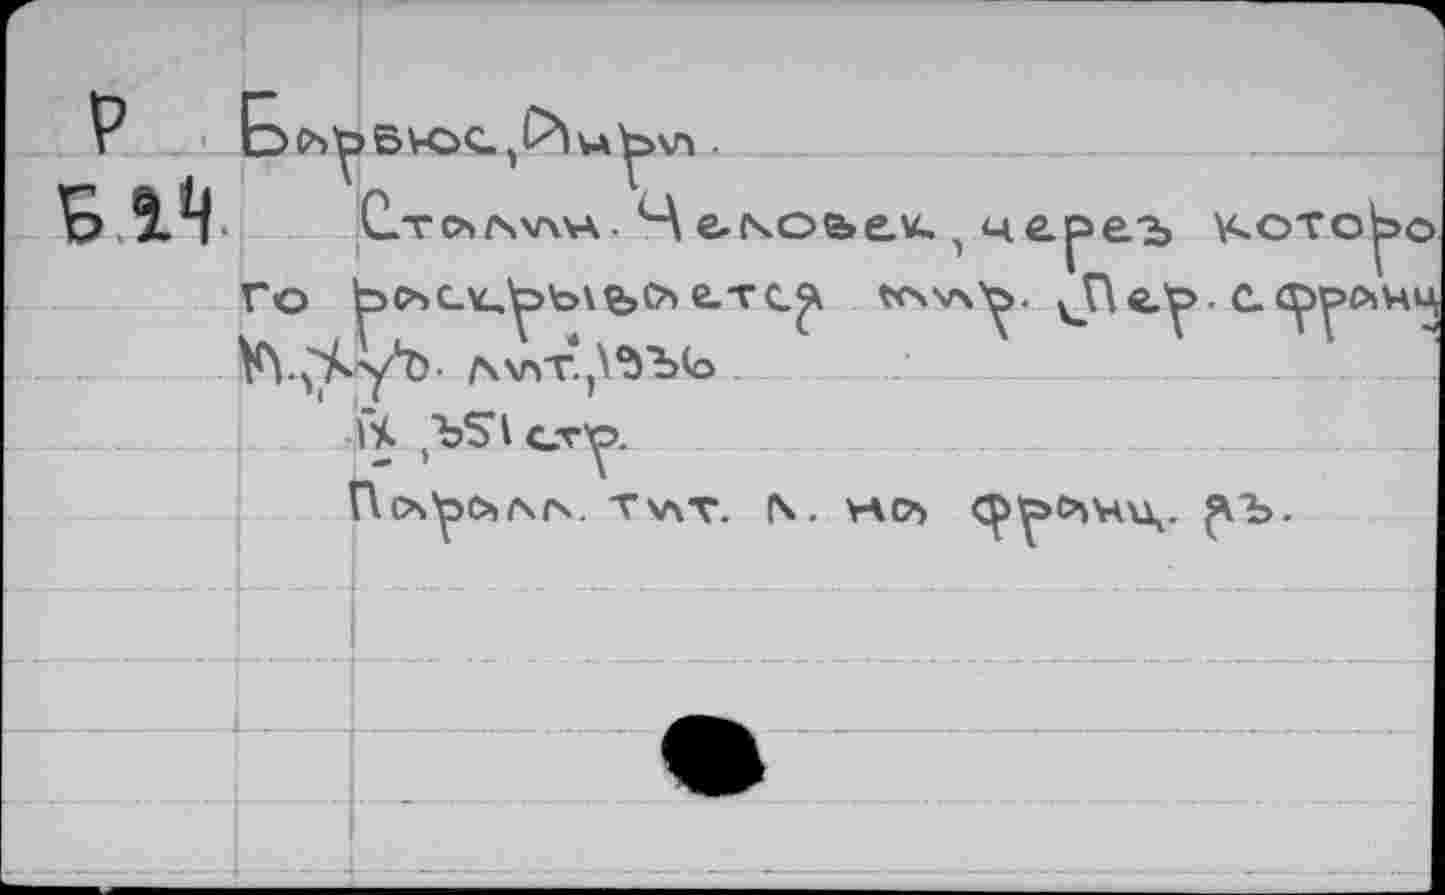 Р Барбюс, Анри.
Б 24. Сталин. Человек, через которо
го раскрывается мир. Пер. с франц
М., Жуз. лит., 1936
IX, 351 стр.
Паралл. тит. л. на франц. яз.